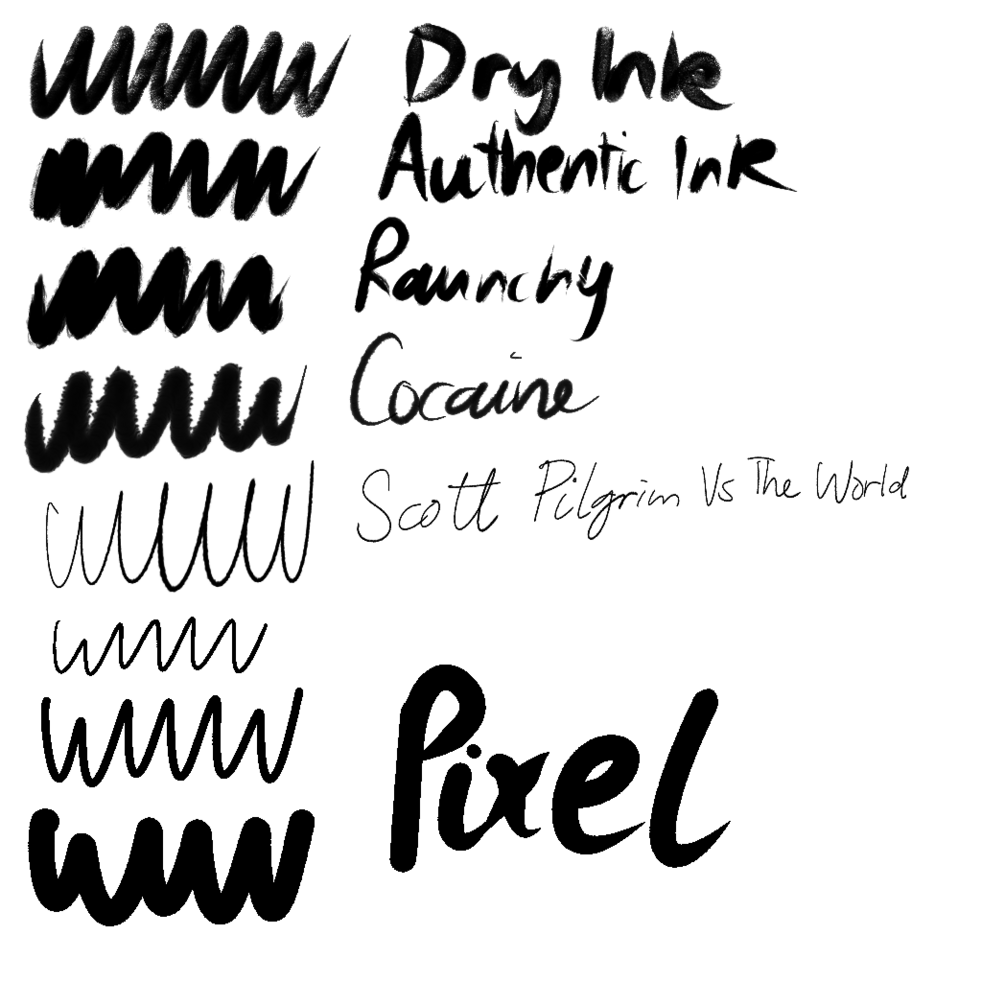 Dry Ink
Authentic Ink
Raunchy
Cocaine
Scott Pilgrim Vs The World
Pixel